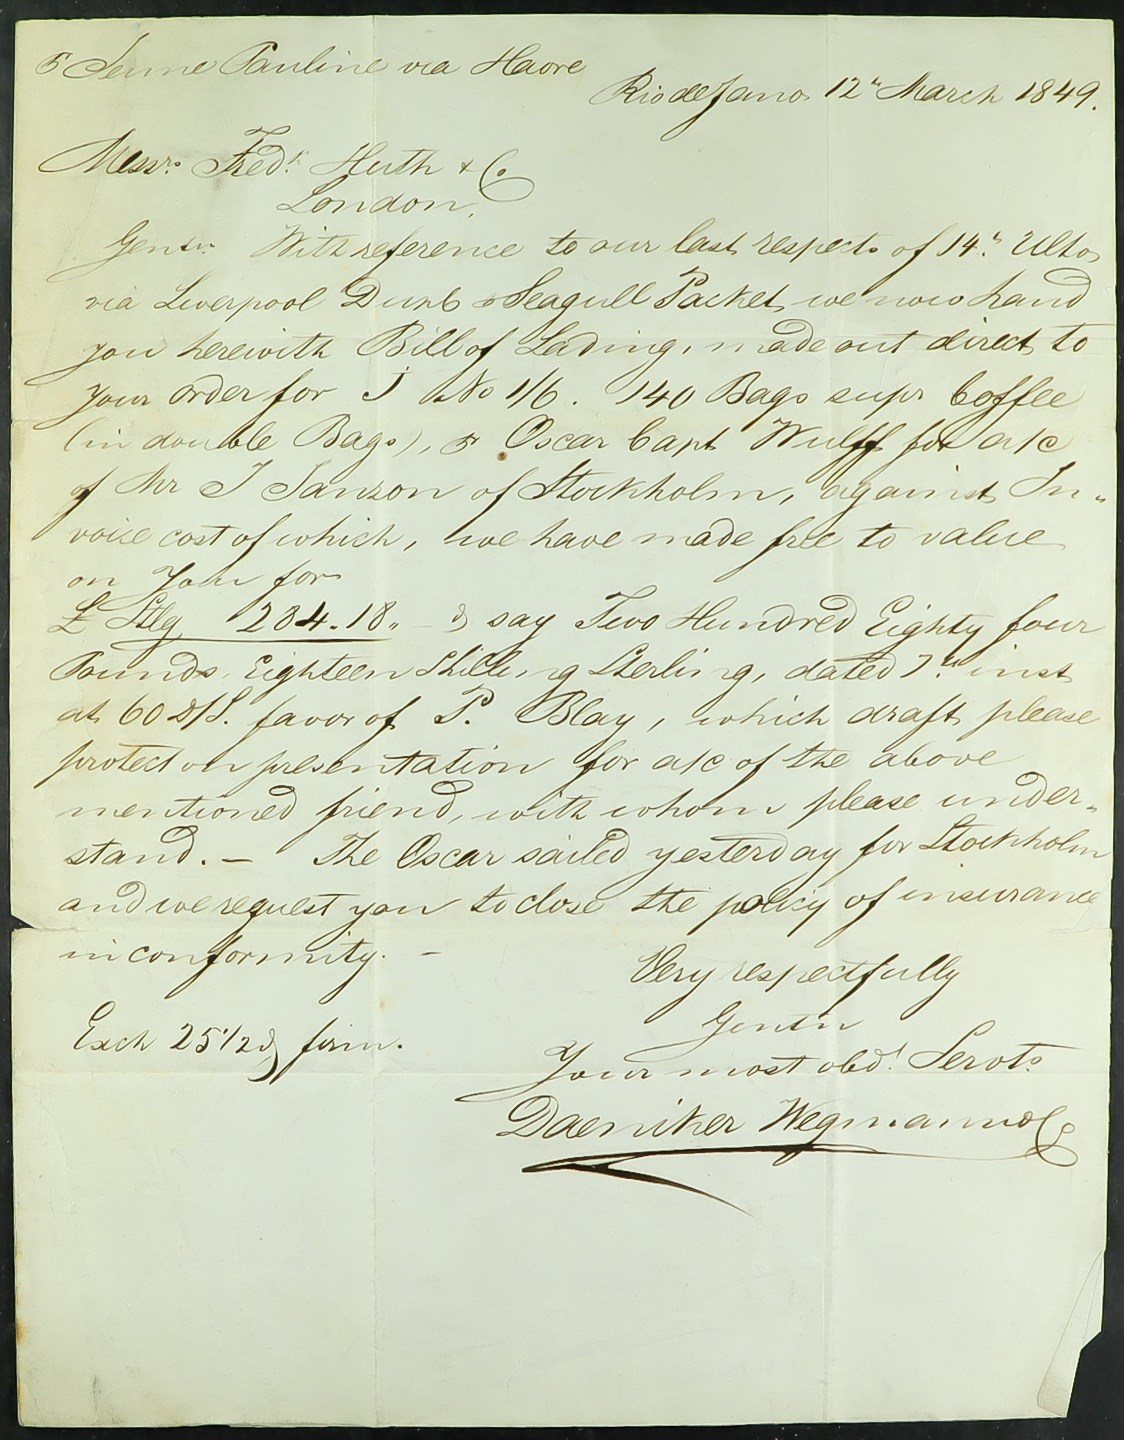 p Jeune Pauline via Havre
Rio de Jano. 12th March 1849.
Messrs. Fredk. Huth & Co
London.
Gentn. With reference to our last respects of 14th. Ulto
via Liverpool & Seagull Packet, we now hand
you herewith Bill of Lading, made out direct to
your order for J No 1/6. 140 Bags supr Coffee
(in double Bags), p Oscar Capt Wulff for a/c
of Mr J Sanzon of Stockholm, against In-
voice cost of which, we have made free to value
on you for
£ Stlg 284.18„ – & say Two Hundred Eighty four
Pounds, Eighteen Shilling Sterling, dated 7th. inst
at 60 D/S. favor of P. Blay, which draft please
protect on presentation for a/c of the above
mentioned friend, with whom please under-
stand. – The Oscar sailed yesterday for Stockholm
and we request you to close the policy of insurance
in conformity. –
Very respectfully
Gentn
Exch 25 1/2 d firm.
Your most obdt. Servts
Daeniker Wegmann & Co